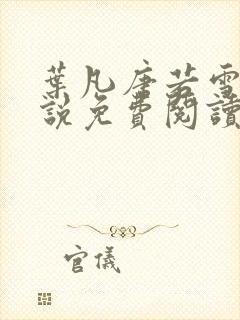 葉凡唐若雪
說免費閱讀
官儀